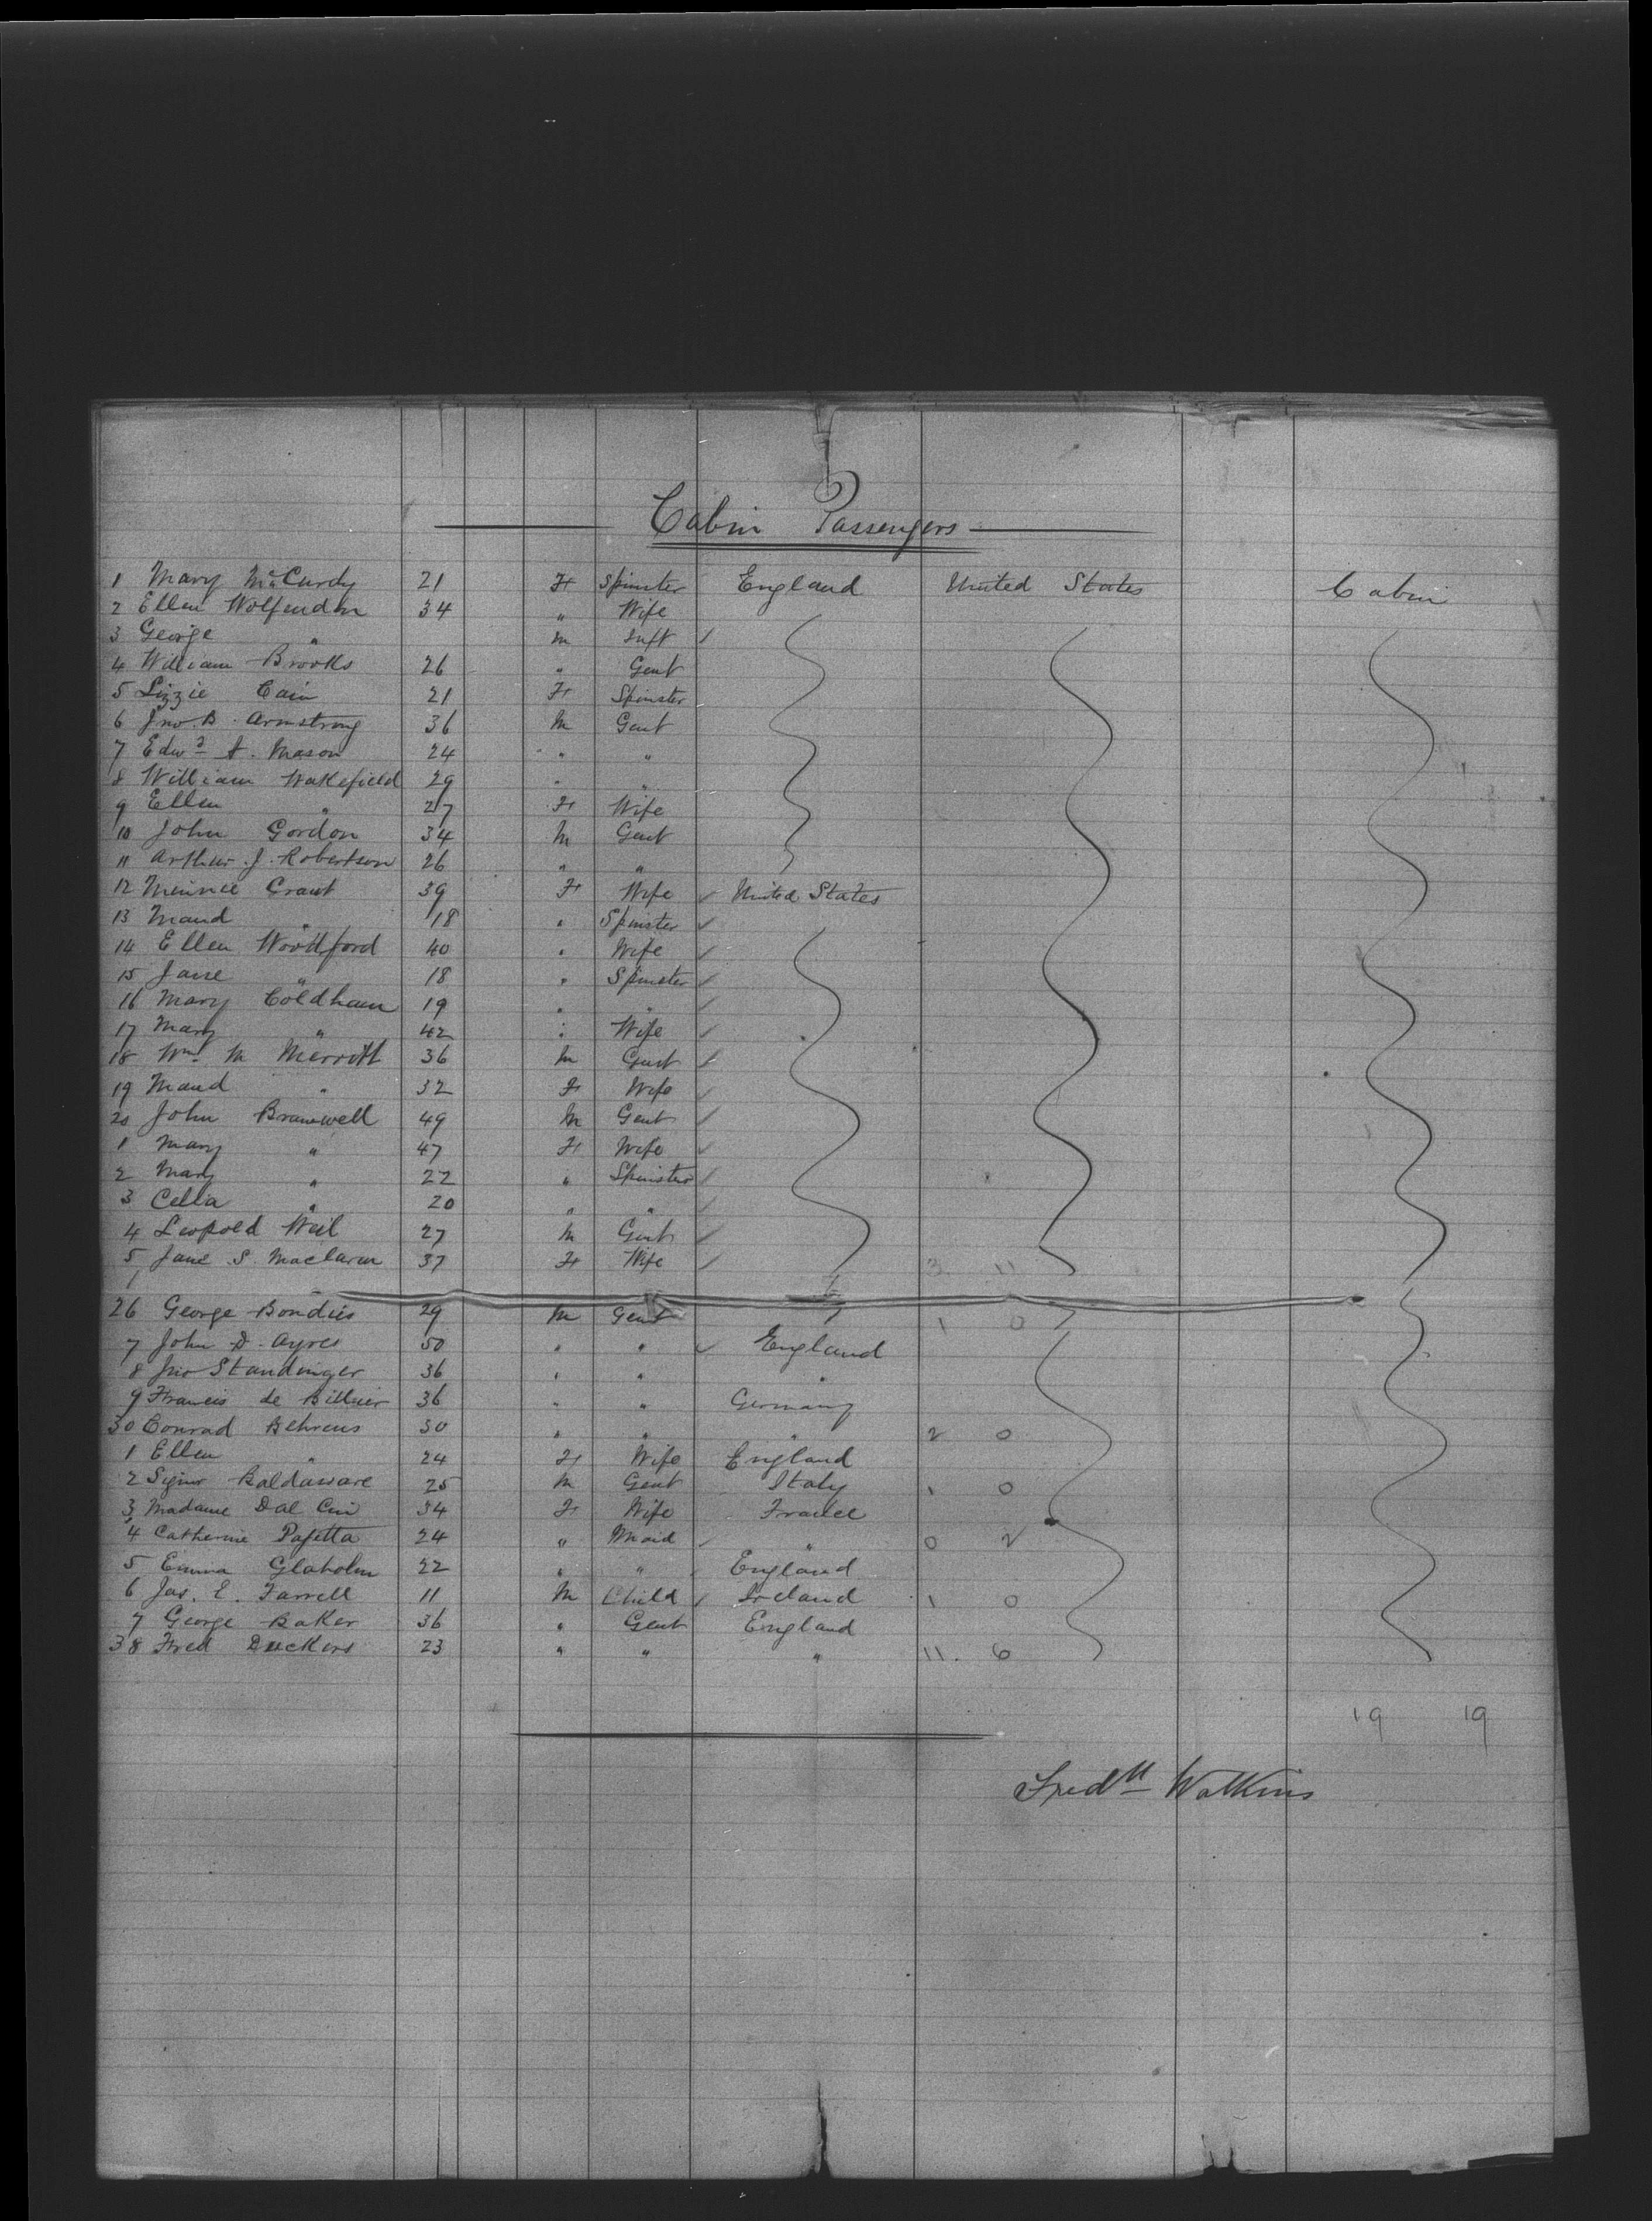 Cabin Passengers
1 Mary McCurdy 21 F Spinster England United States Cabin
2 Ellen Wolfendon 34 " Wife
3 George " m Inft ✓
4 William Brooks 26 " Gent
5 Lizzie Cain 21 F Spinster
6 Jno. B. Armstrong 36 m Gent
7 Edwd A. Mason 24 " "
8 William Wakefield 29 " "
9 Ellen " 27 F Wife
10 John Gordon 34 m Gent
11 Arthur J. Robertson 26 " "
12 Minnie Grant 39 F Wife ✓ United States
13 Maud " 18 " Spinster ✓
14 Ellen Woodford 40 " Wife ✓
15 Jane " 18 " Spinster ✓
16 Mary Coldham 19 " " ✓
17 Mary " 42 " Wife ✓
18 Wm. M Merritt 36 m Gent ✓
19 Maud " 32 F Wife ✓
20 John Bramwell 49 m Gent ✓
1 Mary " 47 F Wife ✓
2 Mary " 22 " Spinster ✓
3 Cella " 20 " " ✓
4 Leopold Weil 27 m Gent ✓
5 Jane S. Maclaren 37 F Wife ✓ 3 11
26 George Bondies 29 m Gent 1 0
7 John D. Ayres 50 " " ✓ England
8 Jno Standinger 36 " " "
9 Francis de 36 " " Germany
30 Conrad Behrens 30 " " " 2 0
1 Ellen " 24 F Wife England
2 Signor 25 m Gent Italy 1 0
3 Madame Dal Cin 34 F Wife France
4 Catherine 24 " Maid ✓ " 0 2
5 Emma Glaholm 22 " " England
6 Jas. E. Farrell 11 m Child ✓ Ireland 1 0
7 George Baker 36 " Gent England
38 Fred Duckers 23 " " " 11. 6
19 19
Fredk Watkins